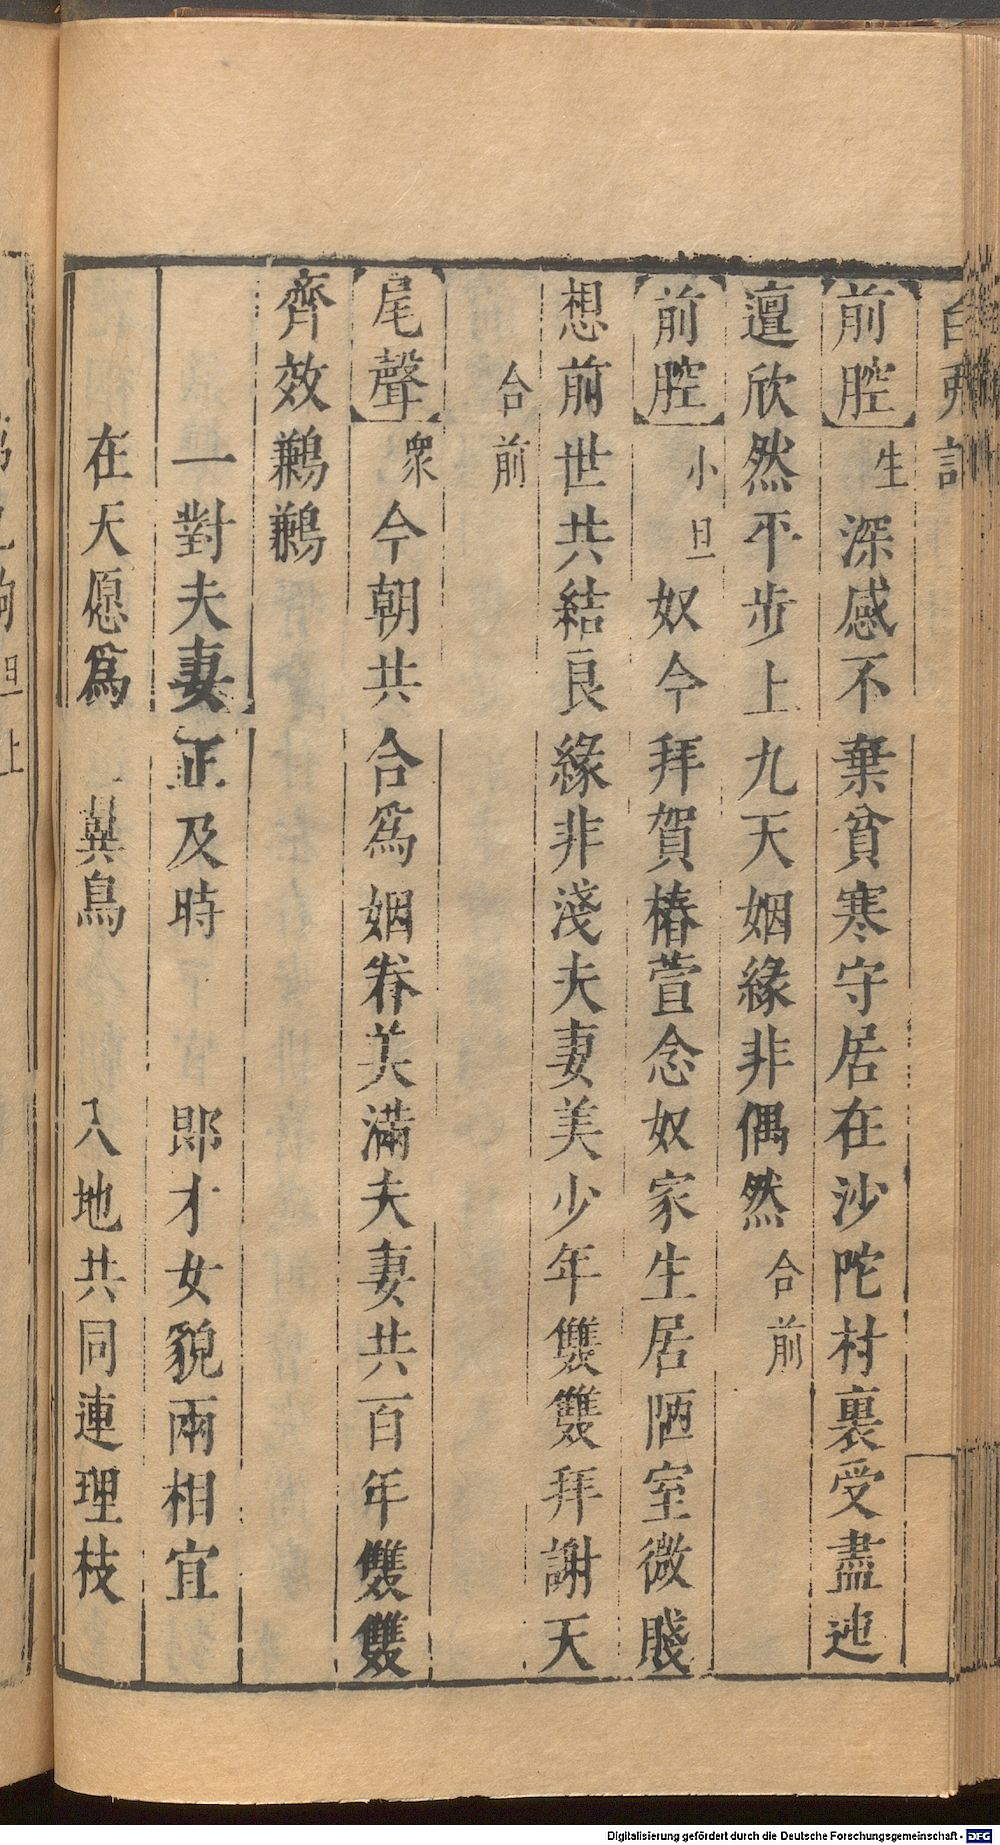 白兎記
【前腔】生深感不棄貧寒守居在沙陀村裏受盡迍
邅欣然平步上九天姻緣非偶然合前
【前腔】小旦奴今拜賀椿萱念奴家生居陋室微賤
想前世共結良緣非淺夫妻美少年雙雙拜謝天
合前
【尾聲】衆今朝共合爲姻眷美滿夫妻共百年雙雙
齊效鶼鶼
一對夫妻正及時 郎才女貌兩相宜
在天愿爲 翼鳥 入地共同連理枝
旦上
Digitalisierung gefördert durch die Deutsche Forschungsgemeinschaft - DFG